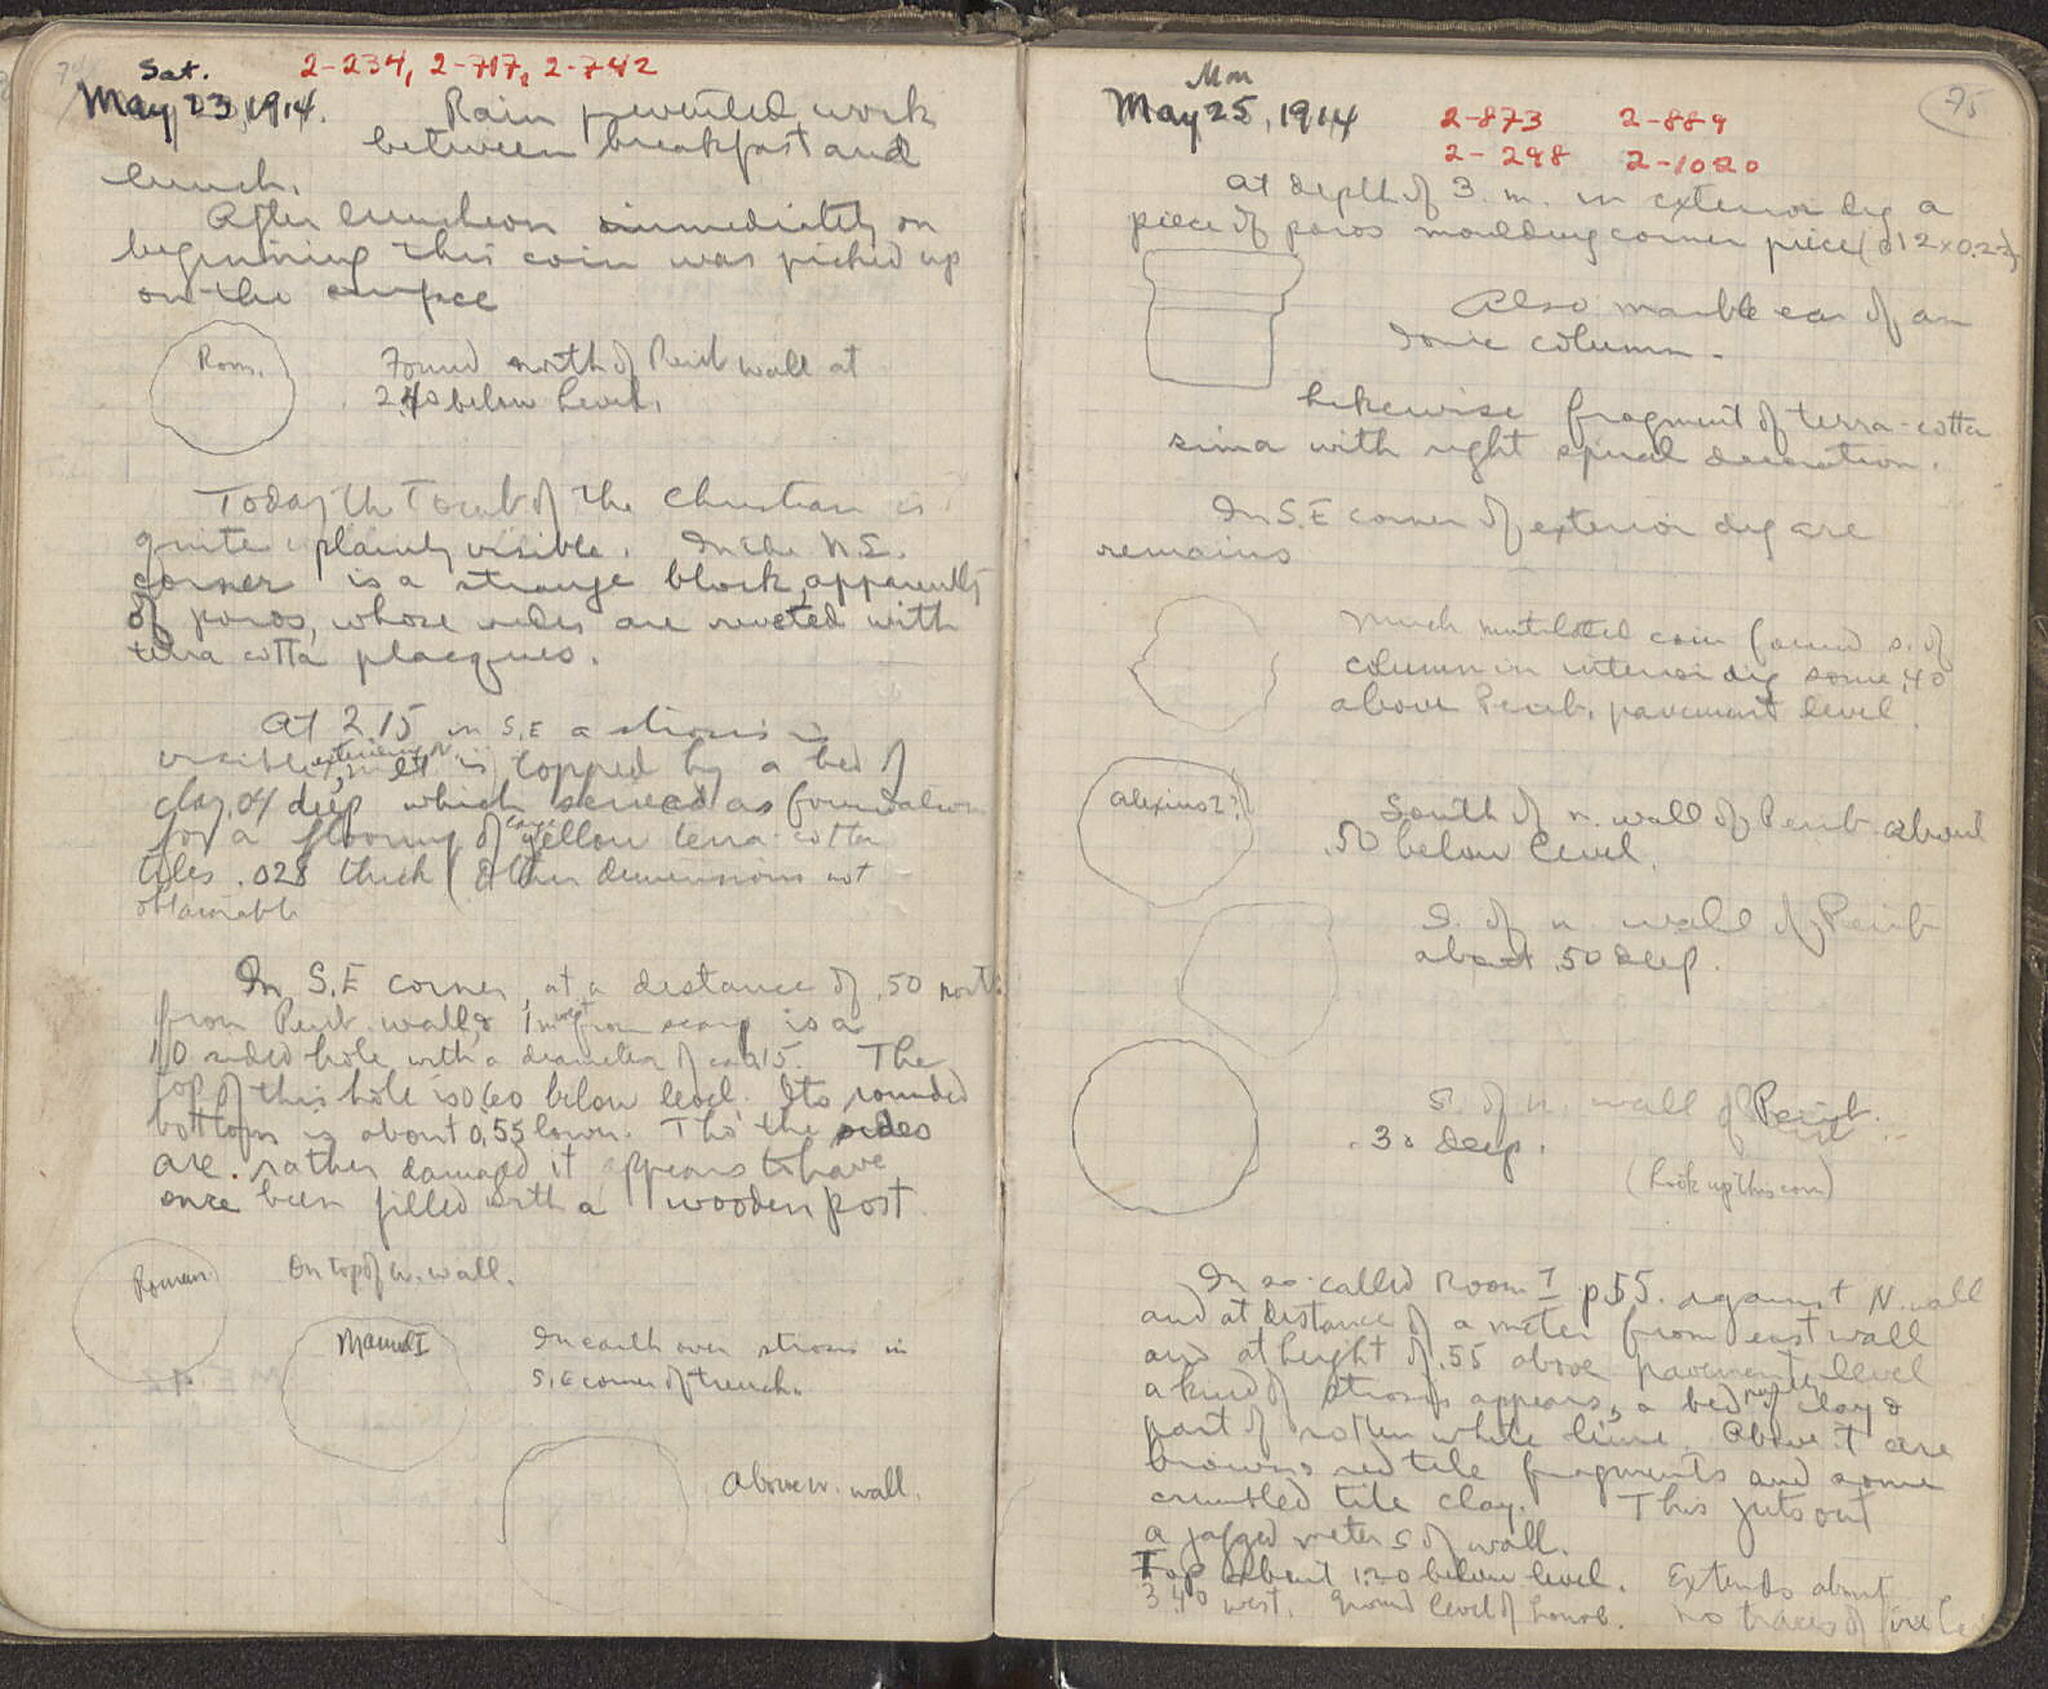 74
Sat.
2-234, 2-717, 2-742
May 23, 1914.
Rain prevented work
between breakfast and
lunch.
After luncheon immediately on
beginning this coin was picked up
on the surface
Rom.
Found north of Perib wall at
2.40 below level.
Today the Tomb of the Christian is
quite plainly visible. In the N.E.
corner is a strange block, apparently
of poros, whose sides are reveted with
terra cotta placques.
At 2.15 in S.E a strosis is
visible, extending N.
It is topped by a bed of
clay .04 deep which served as foundation
for a flooring of yellow terra-cotta
tiles .028 thick (other dimensions not
obtainable
In S.E corner, at a distance of .50 north
from Perib. wall & 1 m west from scarp is a
10 sided hole with a diameter of .15. The
top of this hole is 0.60 below level. Its rounded
bottom is about 0.55 lower. Tho' the sides
are rather damaged it appears to have
once been filled with a wooden post.
Roman
On top of w. wall.
Manuel I
In earth over strosis in
S.E corner of trench.
Above w. wall.
75
Mon
May 25, 1914
2-873 2-889
2-298 2-1020
At depth of 3. m. in exterior dig a
piece of poros moulding corner piece (0.12 x 0.22)
Also marble ear of an
Ionic column.
Likewise fragment of terra-cotta
sima with right spiral decoration.
In S.E corner of exterior dig are
remains
Much mutilated coin found s. of
column in interior dig some .40
above Perib. pavement level.
Alexius I?
South of n. wall of Perib about
.50 below level.
S. of n. wall of Perib
about .50 deep.
S. of n. wall of Perib.
.30 deep.
(Look up this coin)
In so-called Room I p. 55. against N. wall
and at distance of a meter from east wall
and at height of .55 above pavement level
a kind of strosis appears, a bed partly of clay &
part of rotten white lime. Above it are
brown & red tile fragments and some
crumbled tile clay. This juts out
a jagged meter S of wall.
Top about 1.20 below level. Extends about
3.40 west. Ground level of house. No traces of fire